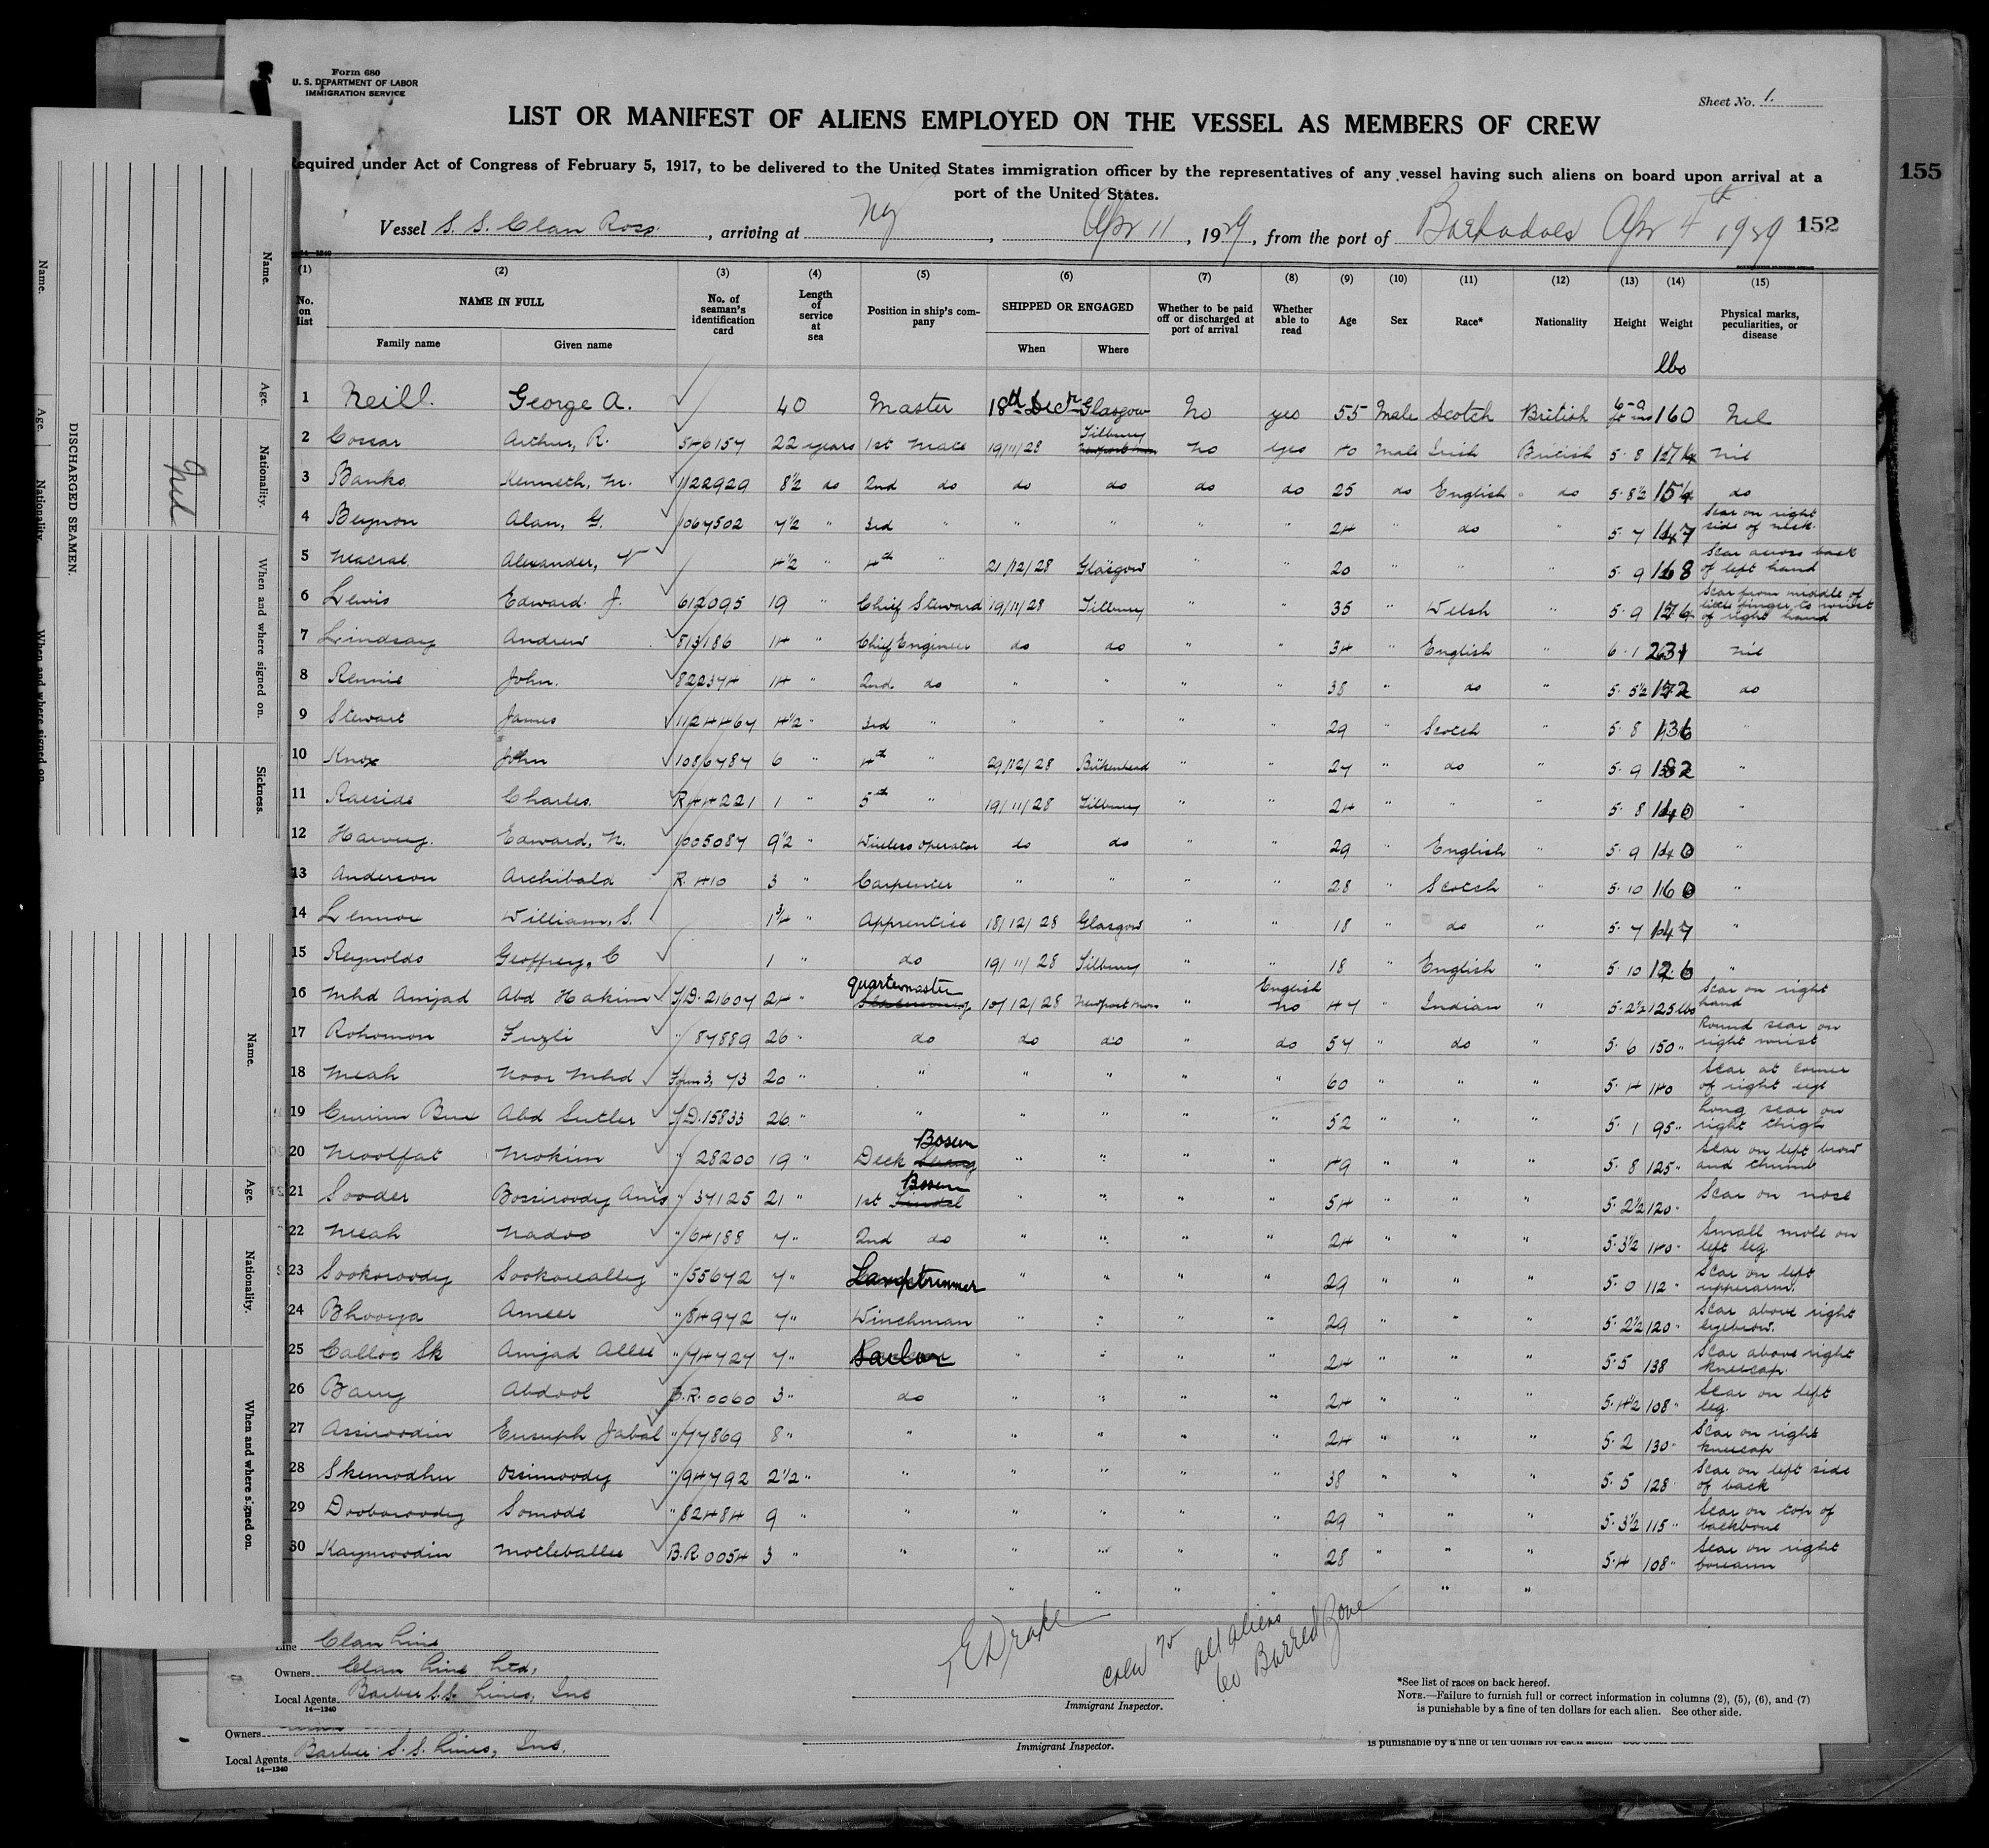 Form 680
U. S. DEPARTMENT OF LABOR
IMMIGRATION SERVICE
Sheet No. 1.
LIST OR MANIFEST OF ALIENS EMPLOYED ON THE VESSEL AS MEMBERS OF CREW
Required under Act of Congress of February 5, 1917, to be delivered to the United States immigration officer by the representatives of any vessel having such aliens on board upon arrival at a
port of the United States.
155
Vessel S. S. Clan Ross, arriving at NY, Apr 11, 1929, from the port of Barbadoes Apr 4th 1929 152
(1) (2) (3) (4) (5) (6) (7) (8) (9) (10) (11) (12) (13) (14) (15)
No. on list NAME IN FULL No. of seaman's identification card Length of service at sea Position in ship's company SHIPPED OR ENGAGED Whether to be paid off or discharged at port of arrival Whether able to read Age Sex Race* Nationality Height Weight Physical marks, peculiarities, or disease
Family name Given name When Where
lbs
1 Neill. George A. 40 Master 18th Decr Glasgow No yes 55 Male Scotch British 6-0 ft ins 160 Nil
2 Cossar Arthur, R. 546157 22 years 1st Mate 19/11/28 Tilbury No yes 40 Male Irish British 5. 8 174 Nil
3 Banks Kenneth, M. 1122929 8½ do 2nd do do do do do 25 do English do 5. 8½ 154 do
4 Beynon Alan, G. 1067502 7½ " 3rd " " " " " 24 " do " 5. 7 147 Scar on right side of neck.
5 Macrae Alexander, 4½ " 4th " 21/12/28 Glasgow " " 20 " " " 5. 9 168 Scar across back of left hand
6 Lewis Edward. J. 612095 19 " Chief Steward 19/11/28 Tilbury " " 35 " Welsh " 5. 9 Scar from middle of little finger to wrist of right hand
7 Lindsay Andrew 813186 14 " Chief Engineer do do " " 34 " English " 6. 1 231 nil
8 Rennie John. 822374 14 " 2nd do " " " " 38 " do " 5. 5½ 172 do
9 Stewart James 1124467 4½ " 3rd " " " " " 29 " Scotch " 5. 8 136 "
10 Knox John 1086787 6 " 4th " 29/12/28 Birkenhead " " 27 " do " 5. 9 182 "
11 Raeside Charles. R 44221 1 " 5th " 19/11/28 Tilbury " " 24 " " " 5. 8 140 "
12 Harvey. Edward, N. 1005087 9½ " Wireless operator do do " " 29 " English " 5. 9 140 "
13 Anderson Archibald R. 410 3 " Carpenter " " " " 28 " Scotch " 5. 10 160 "
14 Lennox William, S. 1¾ " Apprentice 18/12/28 Glasgow " " 18 " do " 5. 7 147 "
15 Reynolds Geoffrey, C 1 " do 19/11/28 Tilbury " " 18 " English " 5. 10 126 "
16 Mhd Amjad Abd Hakim I/D. 21607 24 " quartermaster 10/12/28 Newport Mon " English no 47 " Indian " 5. 2½ 125 lbs Scar on right hand
17 Rohomon Fuzli " 87889 26 " do do do " do 57 " do " 5. 6 150 " Round scar on right wrist
18 Meah Noor Mhd Form 3, 73 20 " " " " " " 60 " " " 5. 4 140 Scar at corner of right eye
19 Abd I/D. 15833 26. " " " " " " 52 " " " 5. 1 95 " Long scar on right thigh
20 Moolfat Mokim " 28200 19 " Deck Bosun " " " " 49 " " " 5. 8 125 " Scar on left brow and thumb
21 Sooder Bossiroody Anis " 37125 21 " 1st Bosun " " " " 54 " " " 5. 2½ 120 " Scar on nose
22 Meah Nadoo " 64188 7 " 2nd do " " " " 24 " " " 5. 3½ 140 " Small mole on left leg.
23 Sookoroody Sookoreally " 55672 7 " Lamptrimmer " " " " 29 " " " 5. 0 112 " Scar on left upperarm.
24 Bhooya Ameer " 84972 7 " Winchman " " " " 29 " " " 5. 2½ 120 " Scar above right eyebrow.
25 Calloo Sk Amjad Allee " 74727 7 " Sailor " " " " 24 " " " 5. 5 138 Scar above right kneecap.
26 Bary Abdool B.R. 0060 3 " do " " " " 24 " " " 5. 4½ 108 " Scar on left leg.
27 Assiroodin Eusuph Jabal " 77869 8 " " " " " " 24 " " " 5. 2 130 " Scar on right kneecap
28 Skemodhu Ossimoody " 94792 2½ " " " " " " 38 " " " 5. 5 128 " Scar on left side of back
29 Doobaroody Somode " 82484 9 " " " " " " 29 " " " 5. 3½ 115 " Scar on top of backbone
30 Kaymoodin Mocleballee B.R. 0054 3 " " " " " " 28 " " " 5. 4 108 " Scar on right forearm
" " " " " "
Line Clan Line
Owners Clan Line Ltd,
Local Agents Barber S.S. Lines, Inc
14—1240
E Drake
Immigrant Inspector.
crew 70
all aliens
60 Barred Zone
*See list of races on back hereof.
NOTE.—Failure to furnish full or correct information in columns (2), (5), (6), and (7)
is punishable by a fine of ten dollars for each alien. See other side.
Owners
Local Agents Barber S. S. Lines, Inc.
14—1240
Immigrant Inspector.
is punishable by a fine of ten dollars for each alien.
DISCHARGED SEAMEN.
Name. Age. Nationality. When and where signed on. Sickness.
Nil
Name. Age. Nationality. When and where signed on.
Name. Age. Nationality. When and where signed on